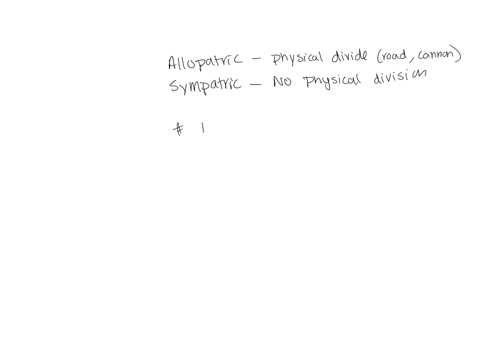 Allopatric – physical divide (road, cannon)
Sympatric – No physical division
# 1